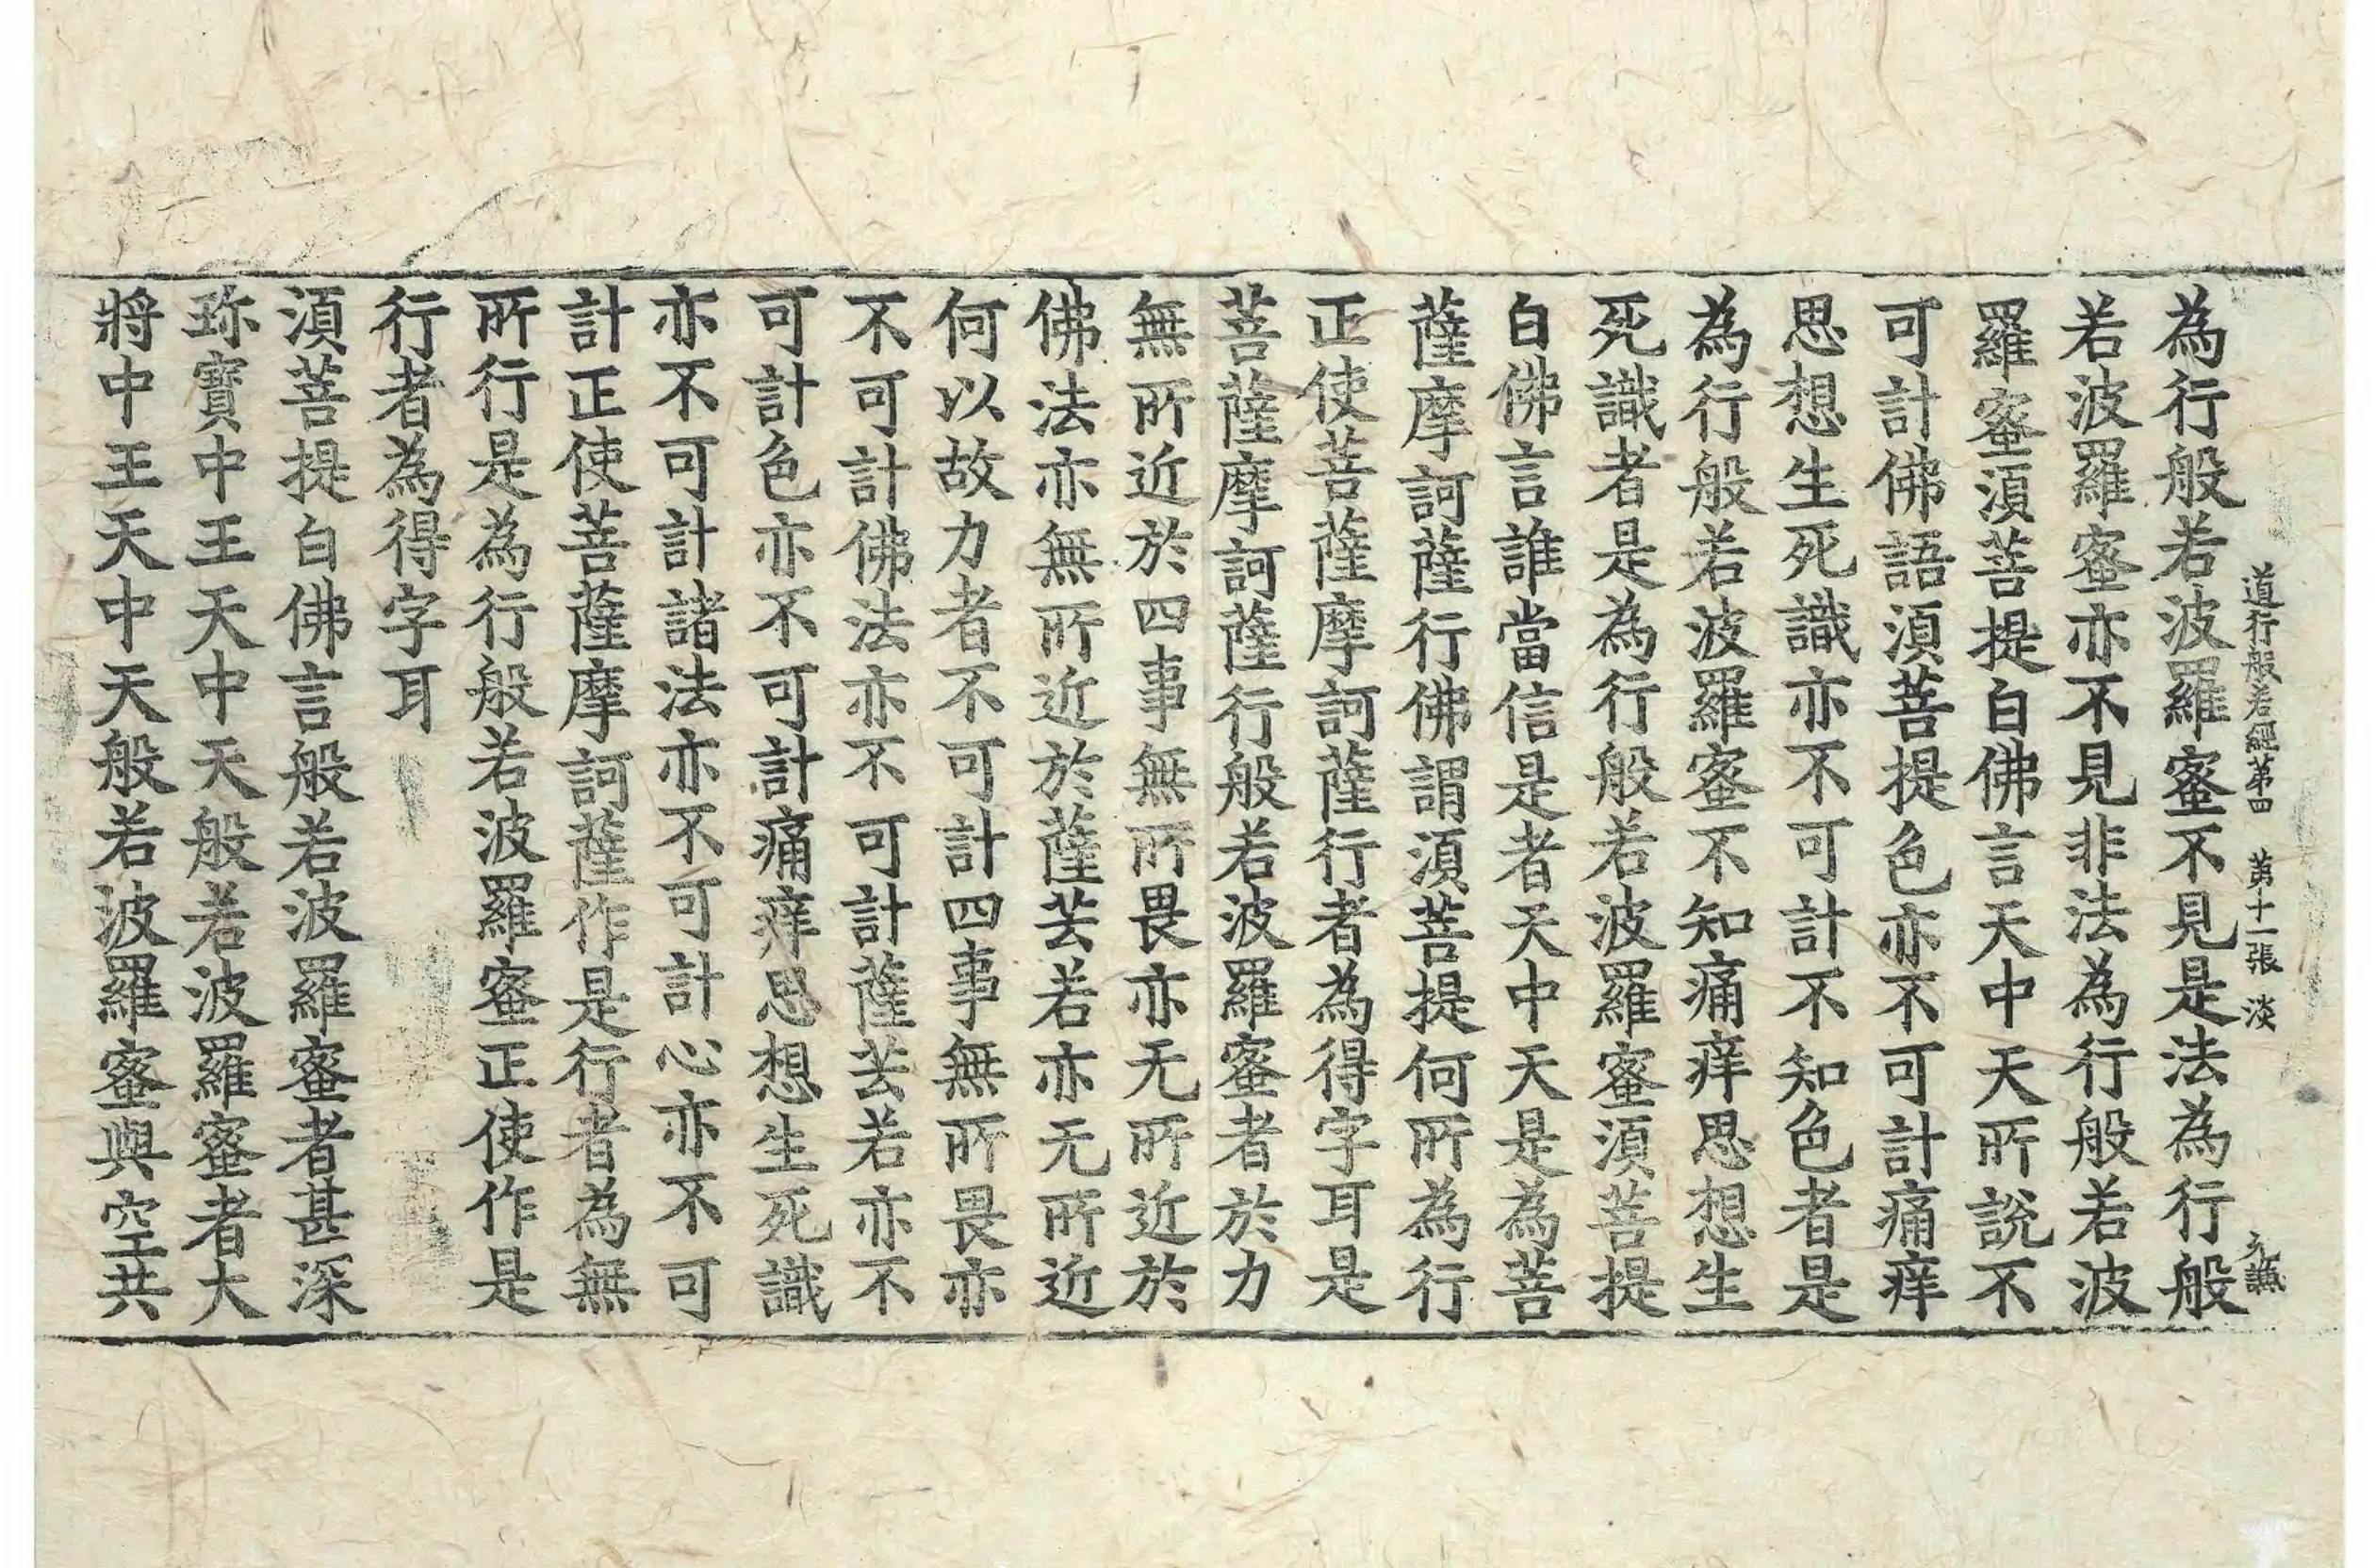 道行般若經第四 第十一張 淡
為行般若波羅蜜不見是法為行般
若波羅蜜亦不見非法為行般若波
羅蜜須菩提白佛言天中天所說不
可計佛語須菩提色亦不可計痛痒
思想生死識亦不可計不知色者是
為行般若波羅蜜不知痛痒思想生
死識者是為行般若波羅蜜須菩提
白佛言誰當信是者天中天是為菩
薩摩訶薩行佛謂須菩提何所為行
正使菩薩摩訶薩行者為得字耳是
菩薩摩訶薩行般若波羅蜜者於力
無所近於四事無所畏亦无所近於
佛法亦無所近於薩芸若亦无所近
何以故力者不可計四事無所畏亦
不可計佛法亦不可計薩芸若亦不
可計色亦不可計痛痒思想生死識
亦不可計諸法亦不可計心亦不可
計正使菩薩摩訶薩作是行者為無
所行是為行般若波羅蜜正使作是
行者為得字耳
須菩提白佛言般若波羅蜜者甚深
珎寶中王天中天般若波羅蜜者大
將中王天中天般若波羅蜜與空共